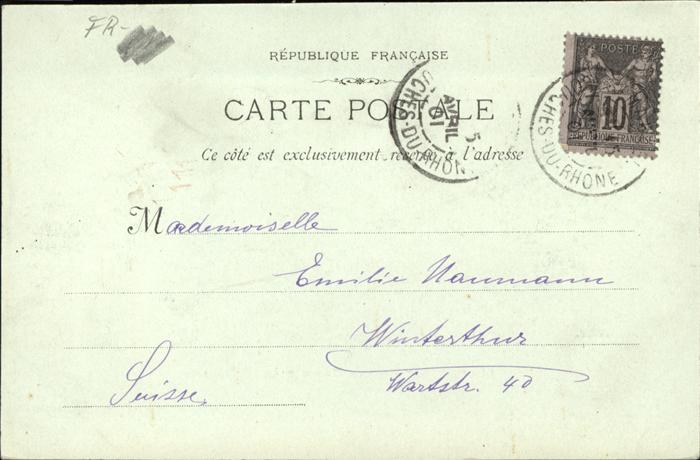 FR-
RÉPUBLIQUE FRANÇAISE
CARTE POSTALE
Ce côté est exclusivement réservé à l'adresse
POSTE
10
RÉPUBLIQUE FRANÇAISE
5
AVRIL
01
BOUCHES-DU-RHÔNE
CHES-DU-RHONE
Mademoiselle
Emilie Naumann
Winterthur
Wartstr. 40
Suisse